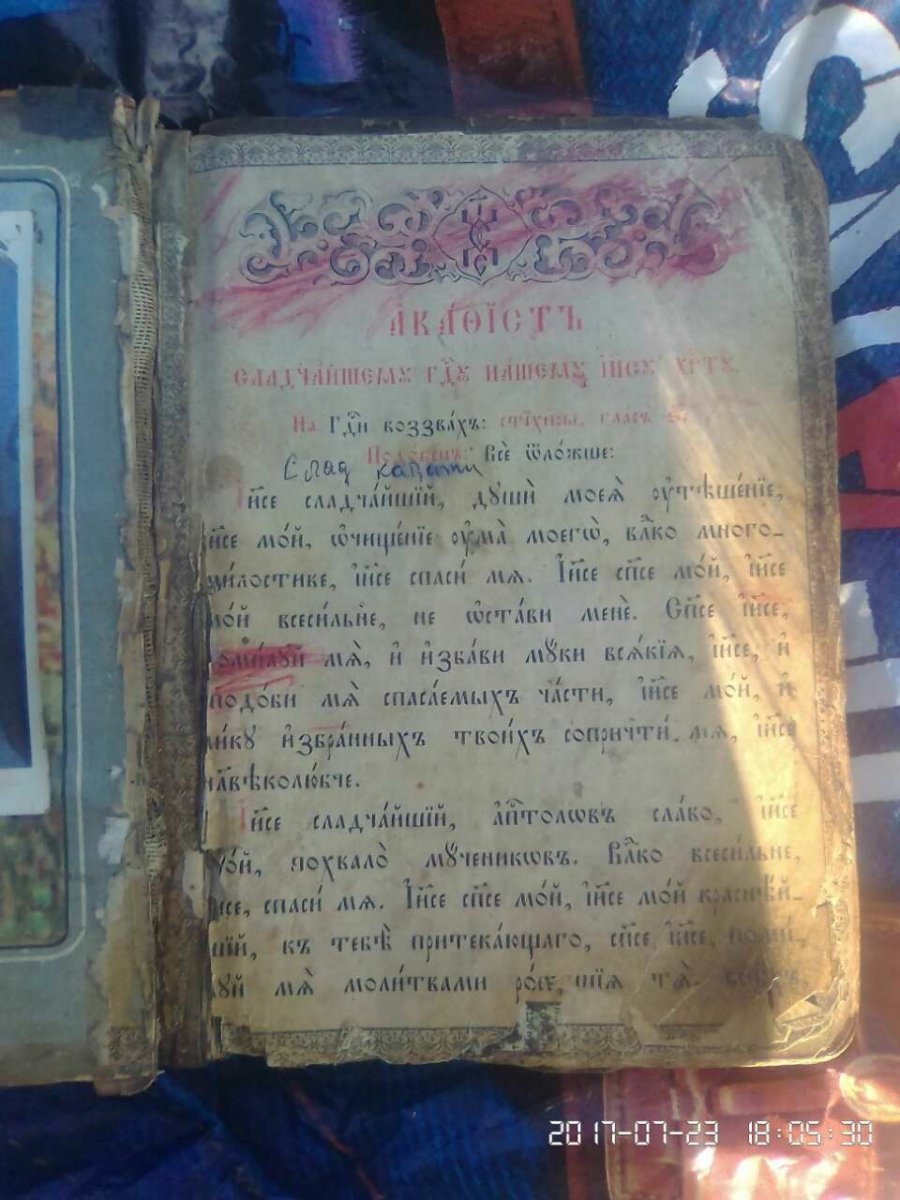 А҆КА́ѲЇСТЪ
СЛАДЧА́ЙШЕМУ ГДⷭ҇У НА́ШЕМУ І҆И҃СУ ХРТⷭ҇У.
На Гдⷭ҇и воззва́хъ: стїхи̑ры, гласъ
Подо́бенъ: Всѐ ѿло́жше:
Слад
І҆и҃се сладча́йшїй, дꙋшѝ моеѧ̀ ᲂу҆тѣше́нїе,
і҆и҃се мо́й, ѡ҆чище́нїе ᲂу҆ма̀ моегѡ̀, влⷣко много-
милостиве, і҆и҃се спаси́ мѧ. І҆и҃се сп҃се мо́й, і҆и҃се
мо́й всеси́льне, не ѡ҆ста́ви менѐ. Сп҃се і҆и҃се,
поми́лꙋй мѧ̀, и҆ и҆зба́ви мꙋ́ки всѧ́кїѧ, і҆и҃се, и҆
сподо́би мѧ̀ спаса́емыхъ ча́сти, і҆и҃се мо́й, и҆
ли́кꙋ и҆збра́нныхъ твои́хъ сопричтѝ мѧ, і҆и҃се
чл҃вѣколю́бче.
І҆и҃се сладча́йшїй, а҆пⷭ҇толѡвъ сла́во, і҆и҃се
мо́й, похвало̀ мꙋ́ченикѡвъ. Влⷣко всеси́льне,
і҆и҃се, спаси́ мѧ. І҆и҃се сп҃се мо́й, і҆и҃се мо́й краснѣ́й-
шїй, къ тебѣ̀ притека́ющаго, сп҃се і҆и҃се, поми́-
лꙋй мѧ̀ моли́твами ро́ждшїѧ тѧ̀.
2017-07-23 18:05:30